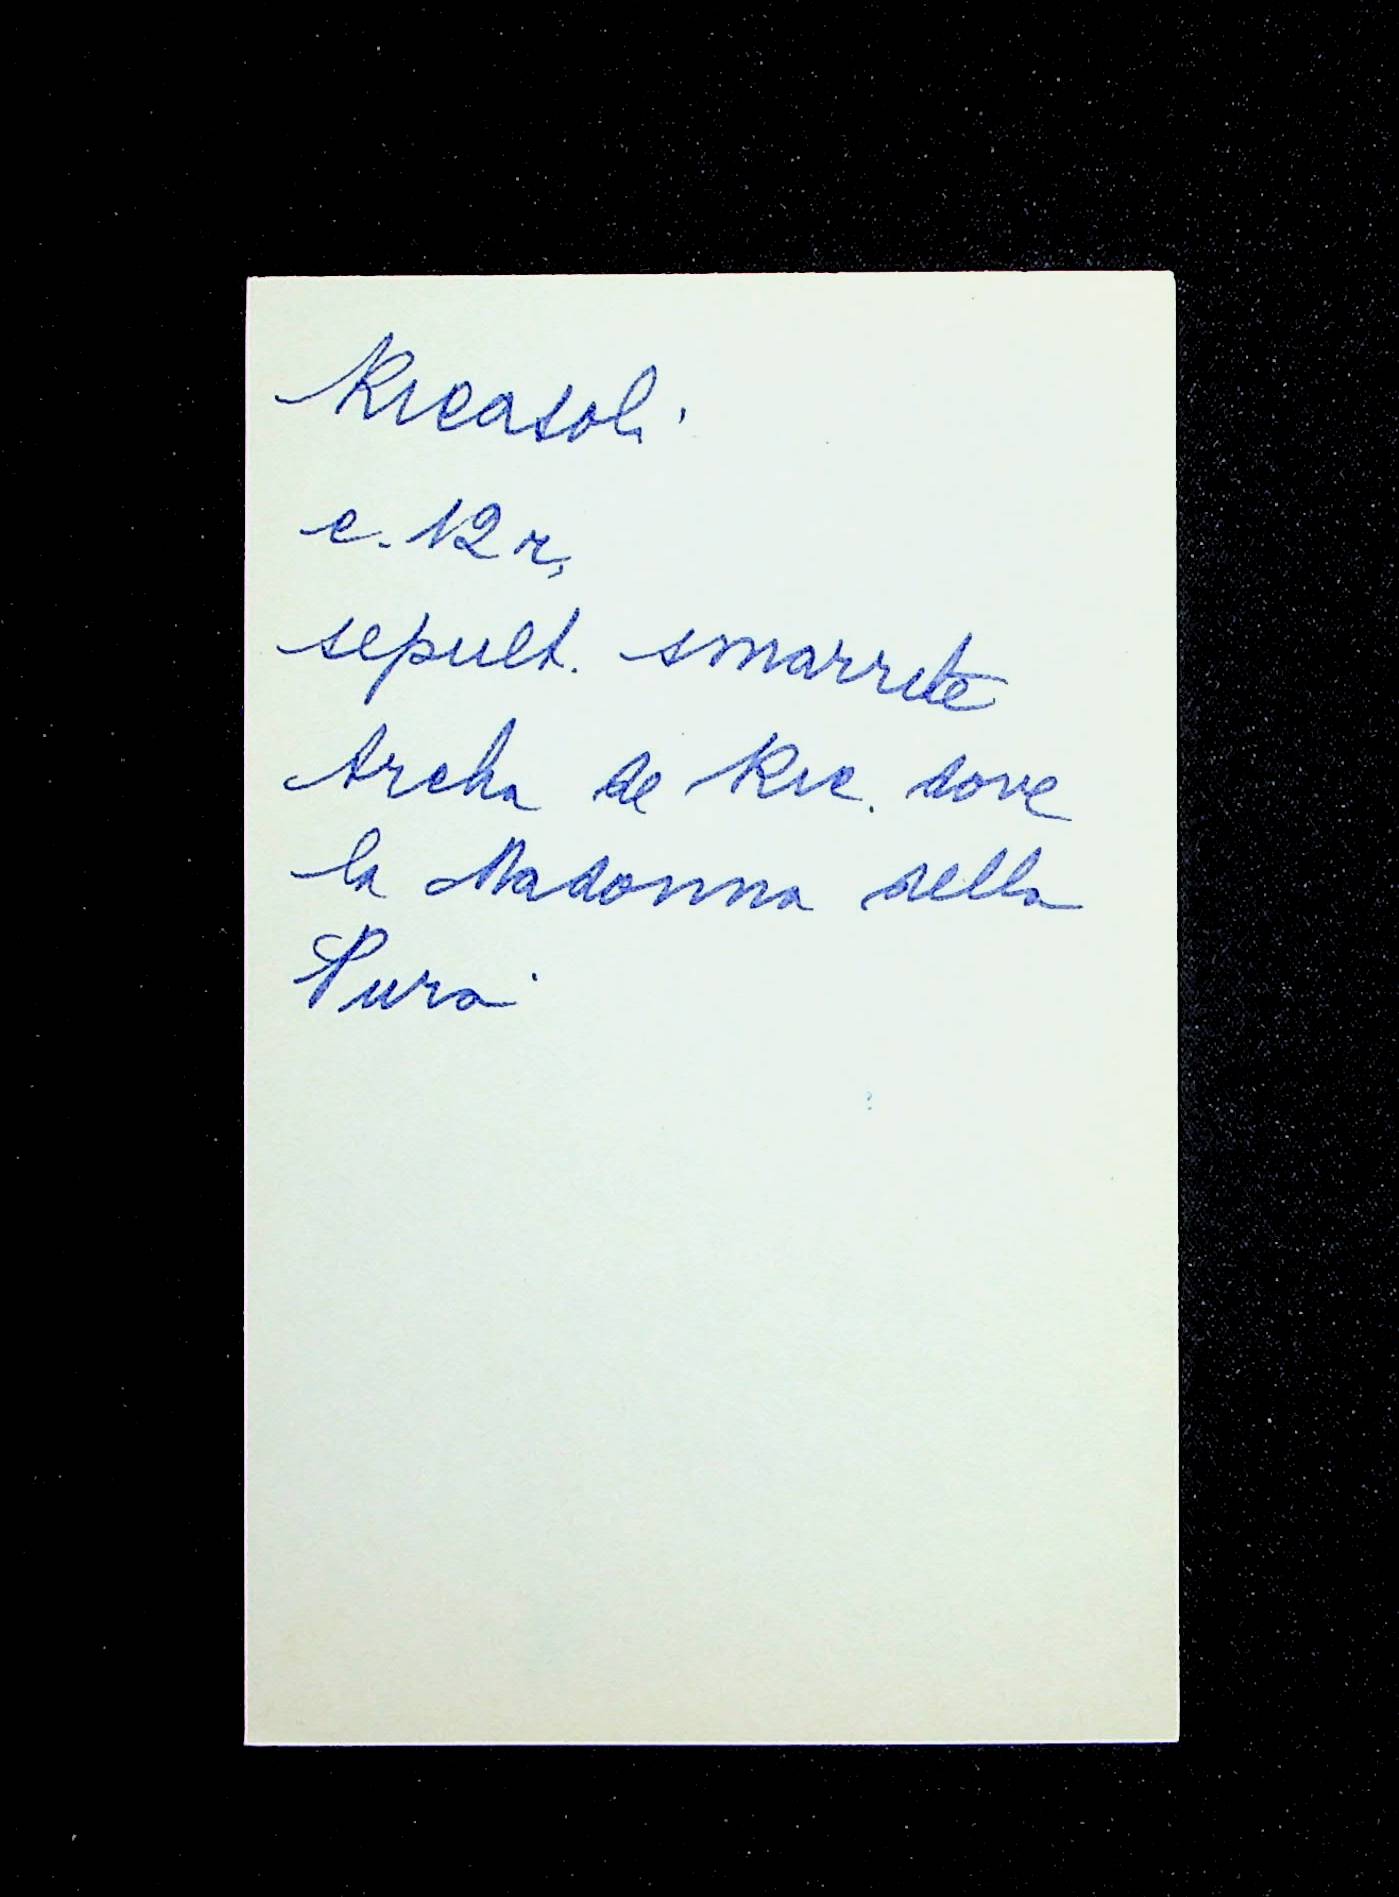 Ricasoli
c. 12 r,
sepult. smarrite
Archa de Ric. dove
la Madonna della
Pura